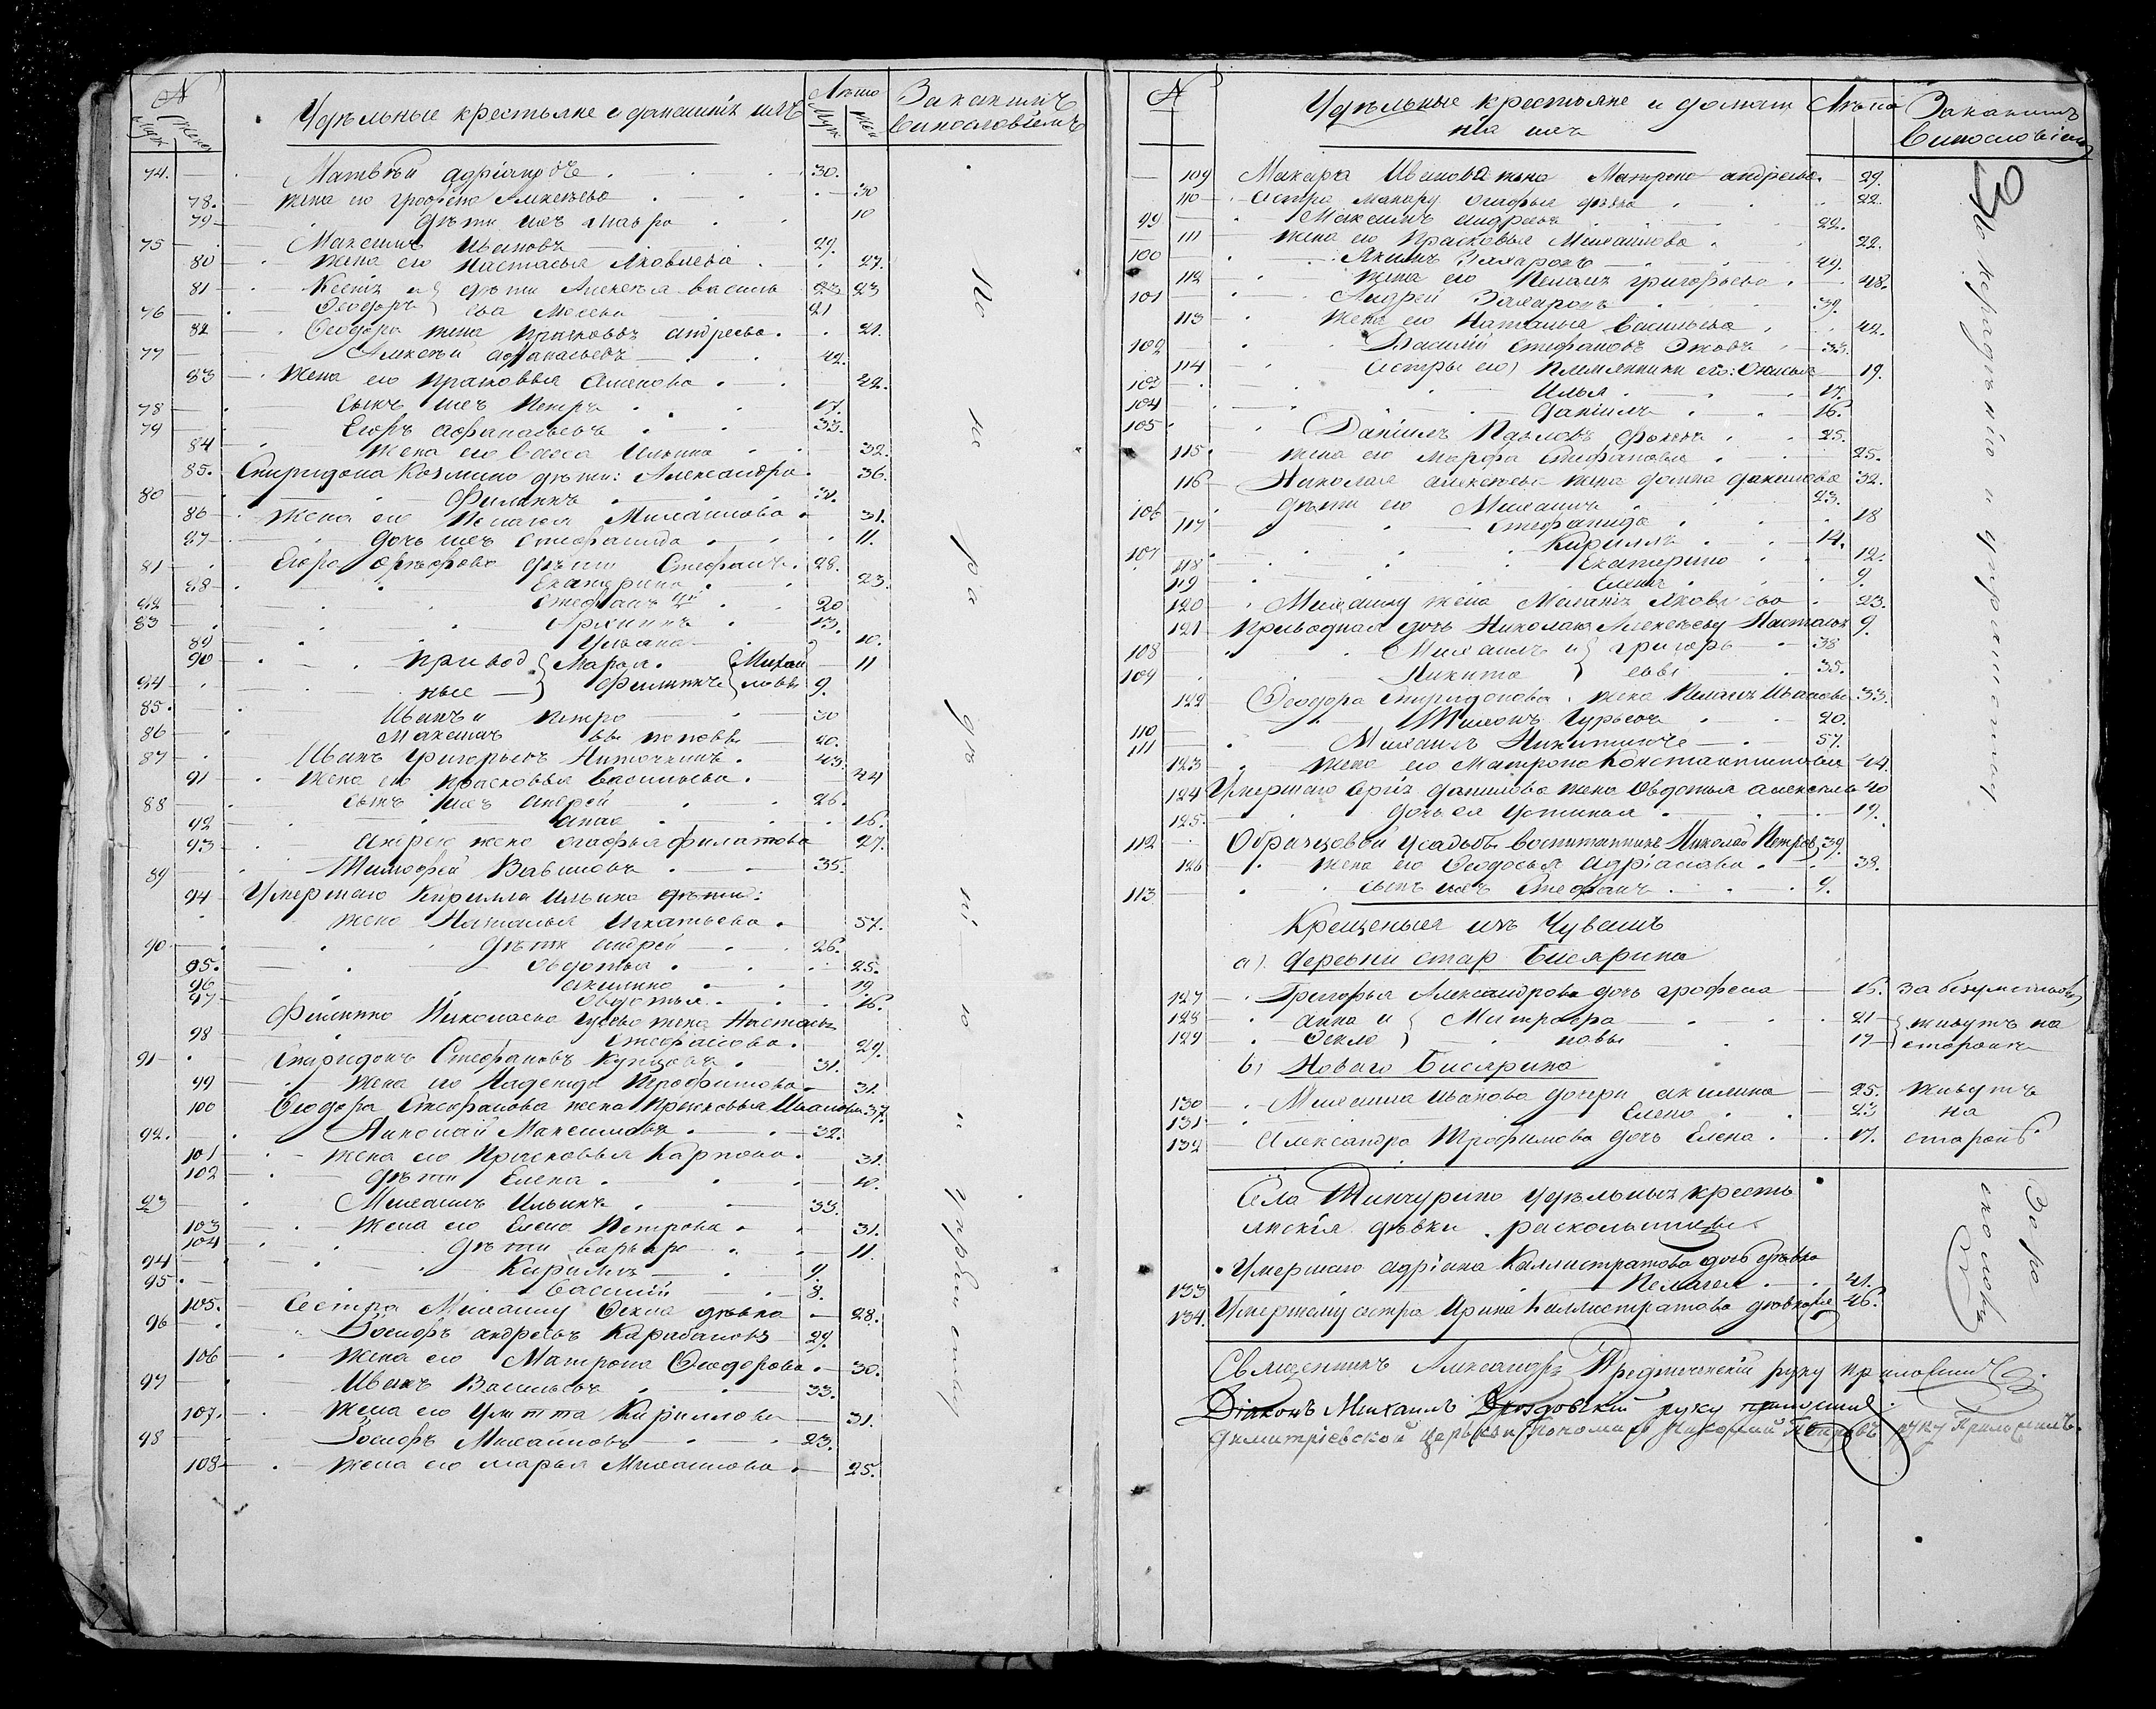 №
Муж
Женс
Удѣльные крестьяне и домашнiя ихъ
Лѣта
Муж
Жен
За какимъ
винословіемъ
74. Матвѣй Адріановъ 30.
78. жена его Агрофена Алексѣева 30
79 дѣти ихъ Мавра 10
75 Максимъ Ивановъ 29.
80 жена его Настасья Яковлева 27.
81 Ксенія и дѣти Алексѣя Василь 23
76 Ѳеодоръ ева Мосева 21
82 Ѳеодора жена Прасковья Андреева 21.
77 Алексѣй Афанасьевъ 42.
83 жена его Прасковья 42.
78 сынъ ихъ Петръ 17.
79 Егоръ Афанасьевъ 33.
84 жена его Васса Ильина 32.
85. Спиридона Козмина дѣти: Александра 36.
80 Филиппъ
86 жена его Пелагея Михаилова 31.
87 дочь ихъ Степанида 11.
81 Егора дѣти Стефанъ 28.
88 Екатерина 23.
82 Стефанъ 2й 20
83 Архипъ 13.
89 Ульяна 10.
90 привод Марья Михаи 11
84 ные Филиппъ ловы 9.
85. Иванъ и Петро 30
86 Максимъ вы поповы 20.
87 Иванъ Григорьевъ Ниточкинъ 43.
91 жена его Прасковья Васильева 44
88 сынъ ихъ Андрей 26.
92 Анна 16.
93 Андрею жена Агафья Филатова 27.
89 Тимофей Вавиловъ 35.
94 Умершаго Кирилла Ильина дѣти:
жена Наталья Игнатьева 57.
90 дѣти Андрей 26.
95. Овдотья 25.
96 Акилина 19
97 Овдотья 16.
Филиппа Николаева Гурьева жена Настасья
98 Стефанова 29.
91 Спиридонъ Стефановъ Купцовъ 31.
99 жена его Надежда Трофимова 31.
100 Ѳеодора Стефанова жена Прасковья Иванова 37.
92. Николай Максимовъ 32.
101 жена его Прасковья Карпова 31.
102 дѣти Елена 10.
93 Михаилъ Ильинъ 33.
103 жена его Елена Петрова 31.
104 дѣти Варвара 11.
94 Кириллъ 9.
95. Василій 3.
105. Сестра Михаилу Ѳекла дѣвка 28.
96 Іосифъ Андреевъ Карабановъ 29.
106 жена его Матрона Ѳеодорова 30.
97 Иванъ Васильевъ 33.
107. жена его Улитта Кириллова 31.
98 Іосифъ Михаиловъ 23.
108 жена его Марья Михаилова 25.
По не ра дѣ нію и упрямству
№
Удѣльные крестьяне и домаш
нія ихъ
Лѣта
За какимъ
винословіемъ
109 Макара Иванова жена Матрона Андреева 29.
110 Сестра Макару Агафья дѣвка 22.
99 Максимъ Андреевъ 22.
111 жена его Прасковья Михаилова 22.
100 Якимъ Захаровъ 49.
112 жена его Пелагея Григорьева 48.
101 Андрей Захаровъ 39.
113 жена его Наталья Васильева 42.
102 Василій Стефановъ Ежовъ 33.
114 Сестры его племянники его: Онисья 19.
103 Илья 17.
104 Даніилъ 16.
105 Даніилъ Павловъ 25.
115 жена его Марфа Стефанова 25.
116 Николая Алексѣева жена Домна Данилова 32.
106 дѣти его Михаилъ 23.
117 Стефанида 18
107 Кириллъ 14.
118 Екатерина 12.
119 Елена 9.
120 Михаилу жена Меланія Яковлева 23.
121 Приводная дочь Николаю Алексѣеву Настасья 9.
108 Михаилъ и Григорь 38
109 Никита евы 35.
122 Ѳеодора Спиридонова жена Пелагея Иванова 33.
110 Тихонъ Гурьевъ 20.
111 Михаилъ Никитинъ 57.
123 жена его Матрона Константинова 44.
124 Умершаго Данилова жена Овдотья Алексѣева 40
125. дочь ея Устинья 19.
112 Образцовой усадьбы воспитанникъ Николай Петровъ 39.
126 жена его Ѳеодосья Адріанова 38.
113 сынъ ихъ Стефанъ 9.
По нерадѣнію и упрямству
Крещеныя изъ Чувашъ
а) деревни стар Бисярина
127 Григорья Александрова дочь Агрофена 16. за безуміемъ
128 Анна и Митрофа 21 живутъ на
129 Ѳекла новы 17 сторонѣ
б) Новаго Бисярина
130 Михаила Иванова дочери Акилина 25. живутъ
131 Елена 23 на
132 Александра Трофимова дочь Елена 17. сторонѣ
Села Тинчурина удѣльныхъ кресть
янскія дѣвки раскольницы
Умершаго Адріана Каллистратова дочь дѣвка
133 Пелагея 41.
134. Умершаго сестра Ирина Каллистратова дѣвка 46.
За ра
сколомъ
Священникъ Александръ Предтеченскій руку приложилъ
Діаконъ Михаилъ Дроздовскій руку приложилъ
Димитріевской церкви Пономарь Николай Петровъ руку приложилъ.